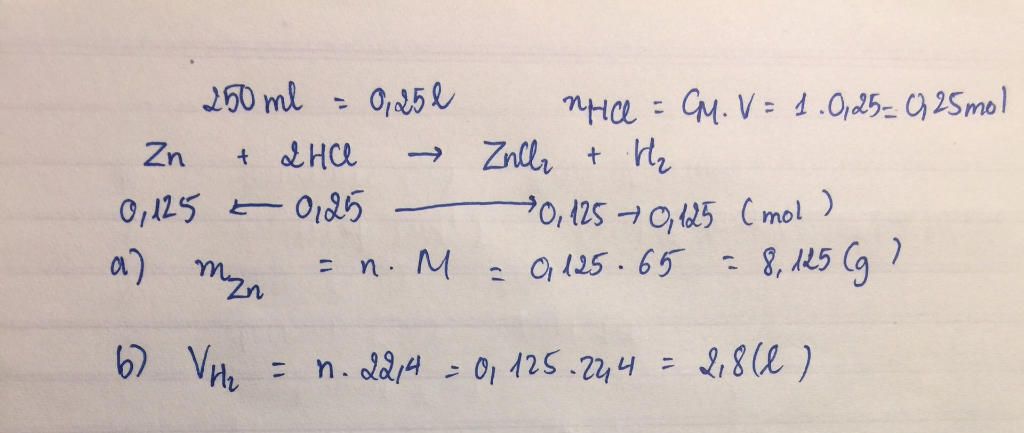 250 ml = 0,25 l nHCl = CM. V = 1 . 0,25 = 0,25 mol
Zn + 2HCl → ZnCl₂ + H₂
0,125 ← 0,25 → 0,125 → 0,125 (mol)
a) mZn = n . M = 0,125 . 65 = 8,125 (g)
b) VH₂ = n. 22,4 = 0,125 . 22,4 = 2,8 (l)